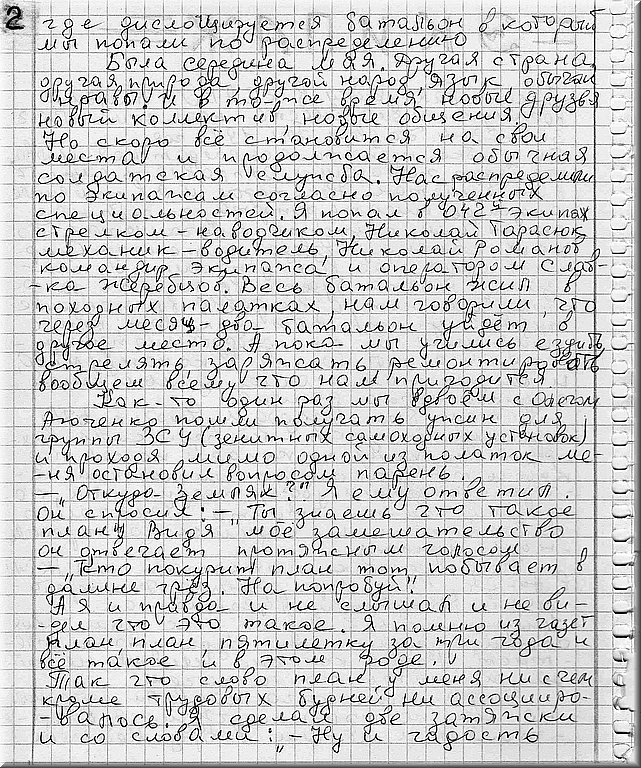 2
где дислоцируется батальон в который
мы попали по распределению
Была середина мая. Другая страна,
другая природа, другой народ, язык, обычаи
нравы. и в то-же время, новые друзья
новый коллектив, новые общения.
Но скоро всё становится на свои
места и продолжается обычная
солдатская служба. Нас распределили
по экипажам согласно полученных
специальностей. Я попал в 042й экипаж
стрелком-наводчиком, Николай Тарасюк
механик-водитель, Николай Романов
командир экипажа и оператором Слав-
-ка Жеребцов. Весь батальон жил в
походных палатках, нам говорили, что
через месяц-два батальон уйдёт в
другое место. А пока мы учились ездить,
стрелять, заряжать, ремонтировать
вообщем всему что нам пригодится
Как-то один раз мы вдвоём с Олегом
Аютченко пошли получать ужин для
группы ЗСУ (зенитных самоходных установок)
и проходя мимо одной из полаток ме-
-ня остановил вопросом парень.
-„Откуда земляк?" Я ему ответил.
Он спросил: -„Ты знаешь что такое
план"? Видя моё замешательство
он отвечает протяжным голосом
-„Кто покурит план тот побывает в
далине грёз. На попробуй".
А я и правда и не слышал и не ви-
-дел что это такое. Я помню из газет
план, план, пятилетку за три года и
всё такое и в этом роде.
Так что слово план у меня ни с чем
кроме трудовых будней ни ассоцииро-
-валось. Я сделал две затяжки
и со словами: „-Ну и гадость